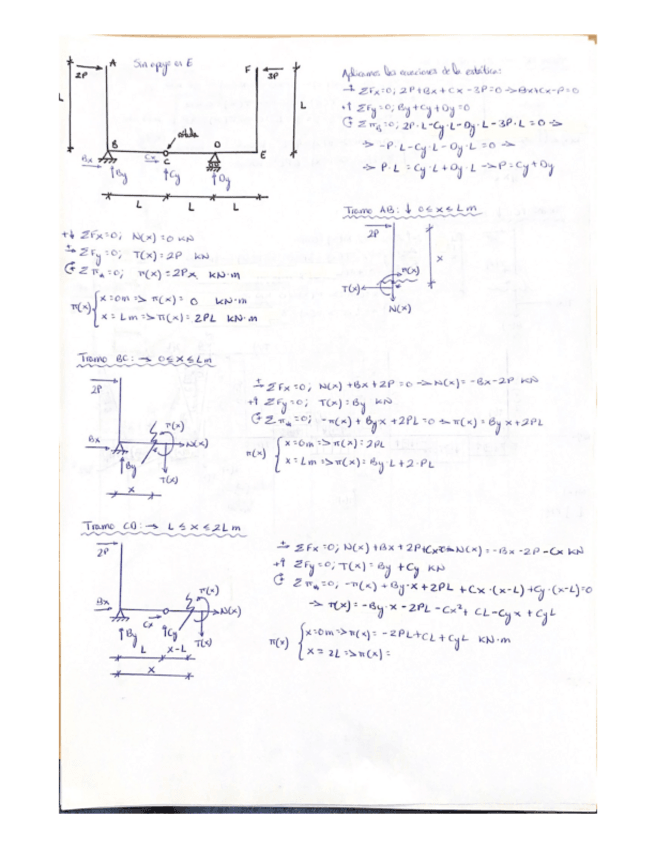 A Sin apoyo en E F
2P 3P
L L
rótula
B C D E
Bx Cx
By Cy Dy
L L L
Aplicamos las ecuaciones de la estática:
ΣFx=0; 2P+Bx+Cx-3P=0 -> Bx+Cx-P=0
ΣFy=0; By+Cy+Dy=0
ΣMB=0; 2P·L-Cy·L-Dy·L-3P·L=0 ->
-> -P·L-Cy·L-Dy·L=0 ->
-> P·L=Cy·L+Dy·L -> P=Cy+Dy
Tramo AB: ↓ 0≤x≤L m
2P
x
M(x)
T(x)
N(x)
ΣFx=0; N(x)=0 kN
ΣFy=0; T(x)=2P kN
ΣM=0; M(x)=2Px kN·m
M(x) { x=0m=>M(x)= 0 kN·m
x=Lm=>M(x)=2PL kN·m
Tramo BC: -> 0≤x≤L m
2P
M(x)
Bx N(x)
By T(x)
x
ΣFx=0; N(x)+Bx+2P=0 -> N(x)=-Bx-2P kN
ΣFy=0; T(x)=By kN
ΣM=0; -M(x)+By·x+2PL=0 -> M(x)=By·x+2PL
M(x) { x=0m=>M(x)=2PL
x=Lm=>M(x)=By·L+2·PL
Tramo CD: -> L≤x≤2L m
2P
M(x)
Bx N(x)
Cx
By Cy T(x)
L x-L
x
ΣFx=0; N(x)+Bx+2P+Cx=0 N(x)=-Bx-2P-Cx kN
ΣFy=0; T(x)=By+Cy kN
ΣM=0; -M(x)+By·x+2PL+Cx·(x-L)+Cy·(x-L)=0
-> M(x)=-By·x-2PL-Cx²+CL-Cyx+CyL
M(x) { x=0m=>M(x)=-2PL+CL+CyL kN·m
x=2L=>M(x)=